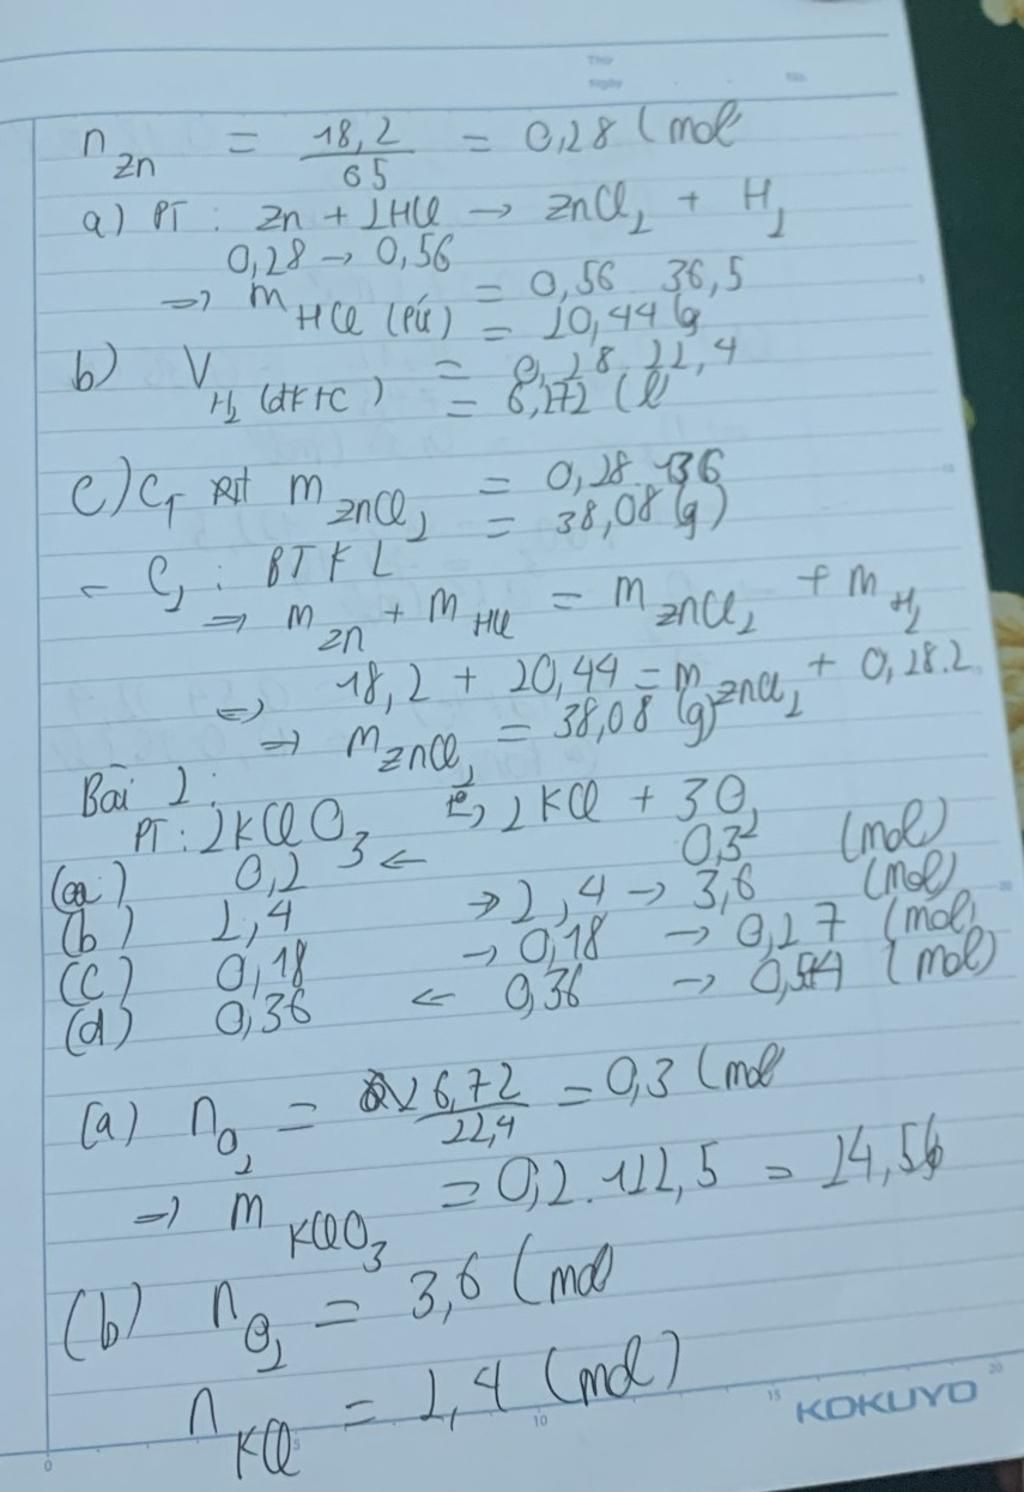 Thứ
Ngày No.
n Zn = 18,2 / 65 = 0,28 (mol
a) PT : Zn + 2HCl → ZnCl2 + H2
0,28 → 0,56
=> m HCl (PỨ) = 0,56 36,5
= 20,44 (g
b) V H2 (đktc) = 0,28 . 22,4
= 6,272 (l
c) C1 m ZnCl2 = 0,28 . 136
= 38,08 (g)
- C2 : BTKL
=> m Zn + m HCl = m ZnCl2 + m H2
<=> 18,2 + 20,44 = m ZnCl2 + 0,28.2
=> m ZnCl2 = 38,08 (g)
Bài 2 :
PT : 2KClO3 t°→ 2KCl + 3O2
(a) 0,2 ← 0,3 (mol)
(b) 2,4 → 2,4 → 3,6 (mol)
(c) 0,18 → 0,18 → 0,27 (mol)
(d) 0,36 ← 0,36 → 0,54 (mol)
(a) n O2 = 6,72 / 22,4 = 0,3 (mol
=> m KClO3 = 0,2 . 122,5 = 24,5
(b) n O2 = 3,6 (mol
n KCl = 2,4 (mol)
KOKUYO
0 5 10 15 20